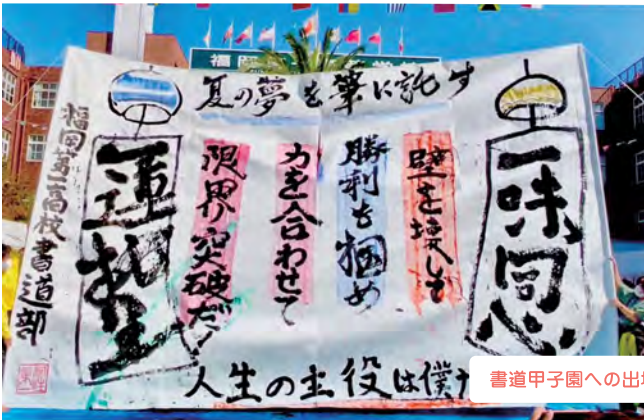 福岡
夏の夢を筆に託す
一味同心
壁を壊して
勝利を掴め
力を合わせて
限界突破だ!
一蓮托生
福岡第一高校書道部
人生の主役は僕
書道甲子園への出